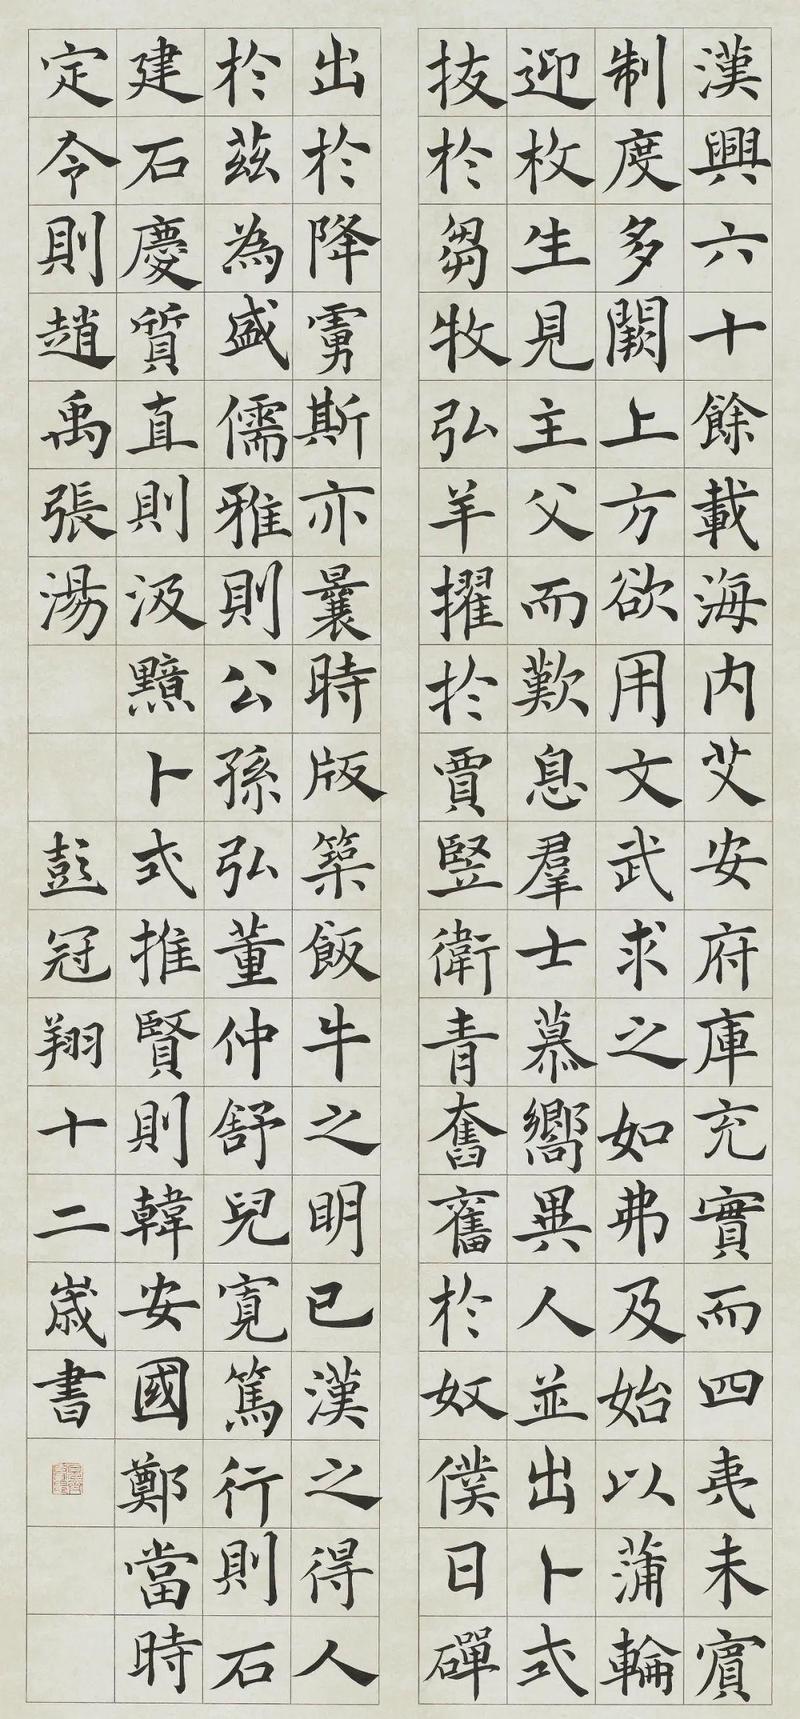 漢興六十餘載海内艾安府庫充實而四夷未賓
制度多闕上方欲用文武求之如弗及始以蒲輪
迎枚生見主父而歎息羣士慕嚮異人並出卜式
拔於芻牧弘羊擢於賈豎衛青奮於奴僕日磾
出於降虜斯亦曩時版築飯牛之明已漢之得人
於茲為盛儒雅則公孫弘董仲舒兒寬篤行則石
建石慶質直則汲黯卜式推賢則韓安國鄭當時
定令則趙禹張湯 彭冠翔十二歲書